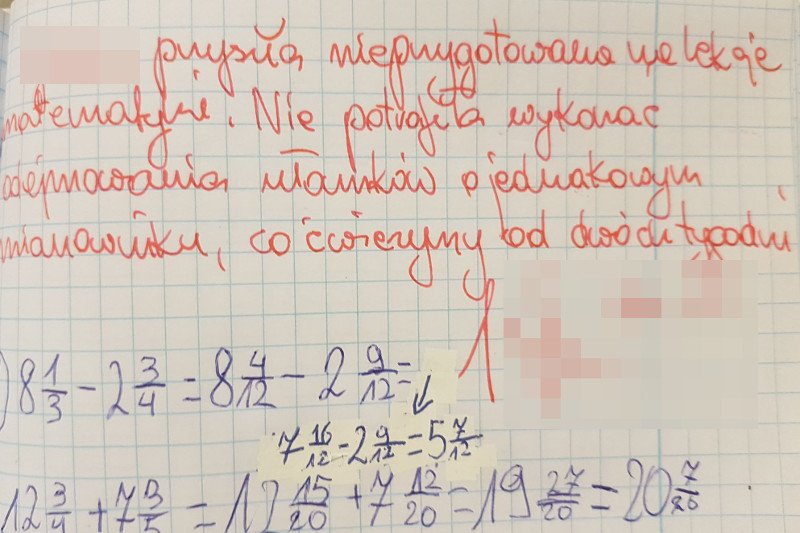 przyszła nieprzygotowana na lekcje
matematyki. Nie potrafiła wykonać
odejmowania ułamków o jednakowym
mianowniku, co ćwiczymy od dwóch tygodni
1
8 1/3 - 2 3/4 = 8 4/12 - 2 9/12 =
7 16/12 - 2 9/12 = 5 7/12
12 3/4 + 7 3/5 = 12 15/20 + 7 12/20 = 19 27/20 = 20 7/20